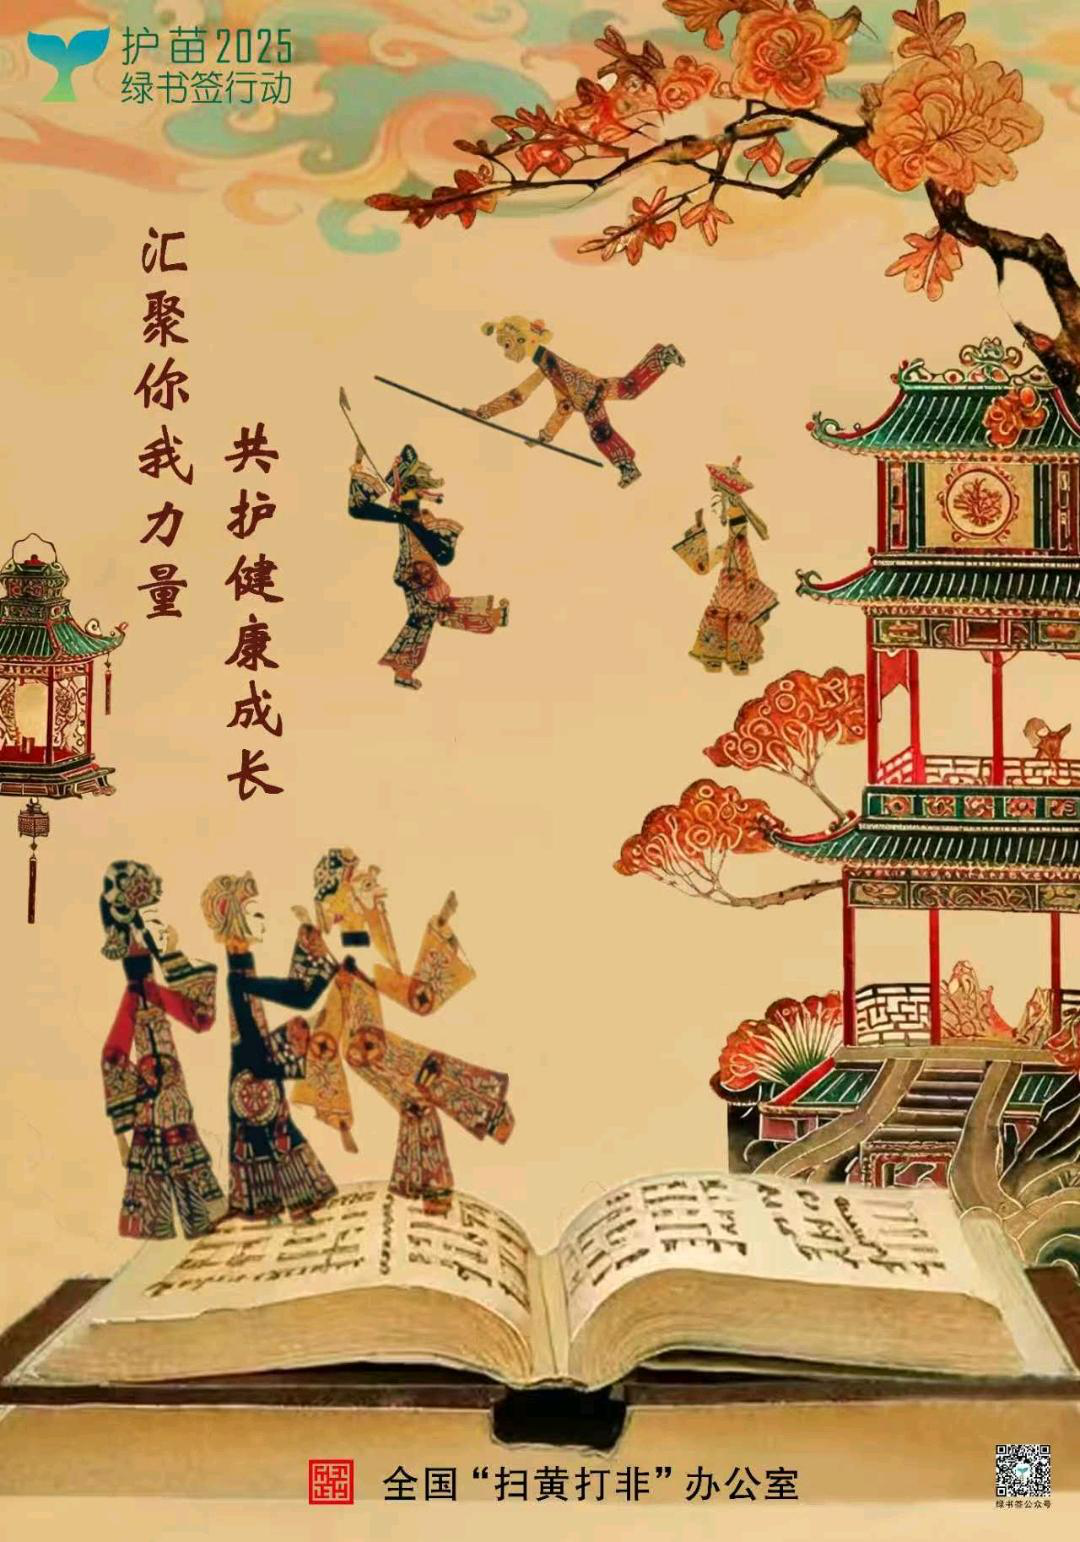 护苗2025
绿书签行动
汇聚你我力量
共护健康成长
全国“扫黄打非”办公室
绿书签公众号